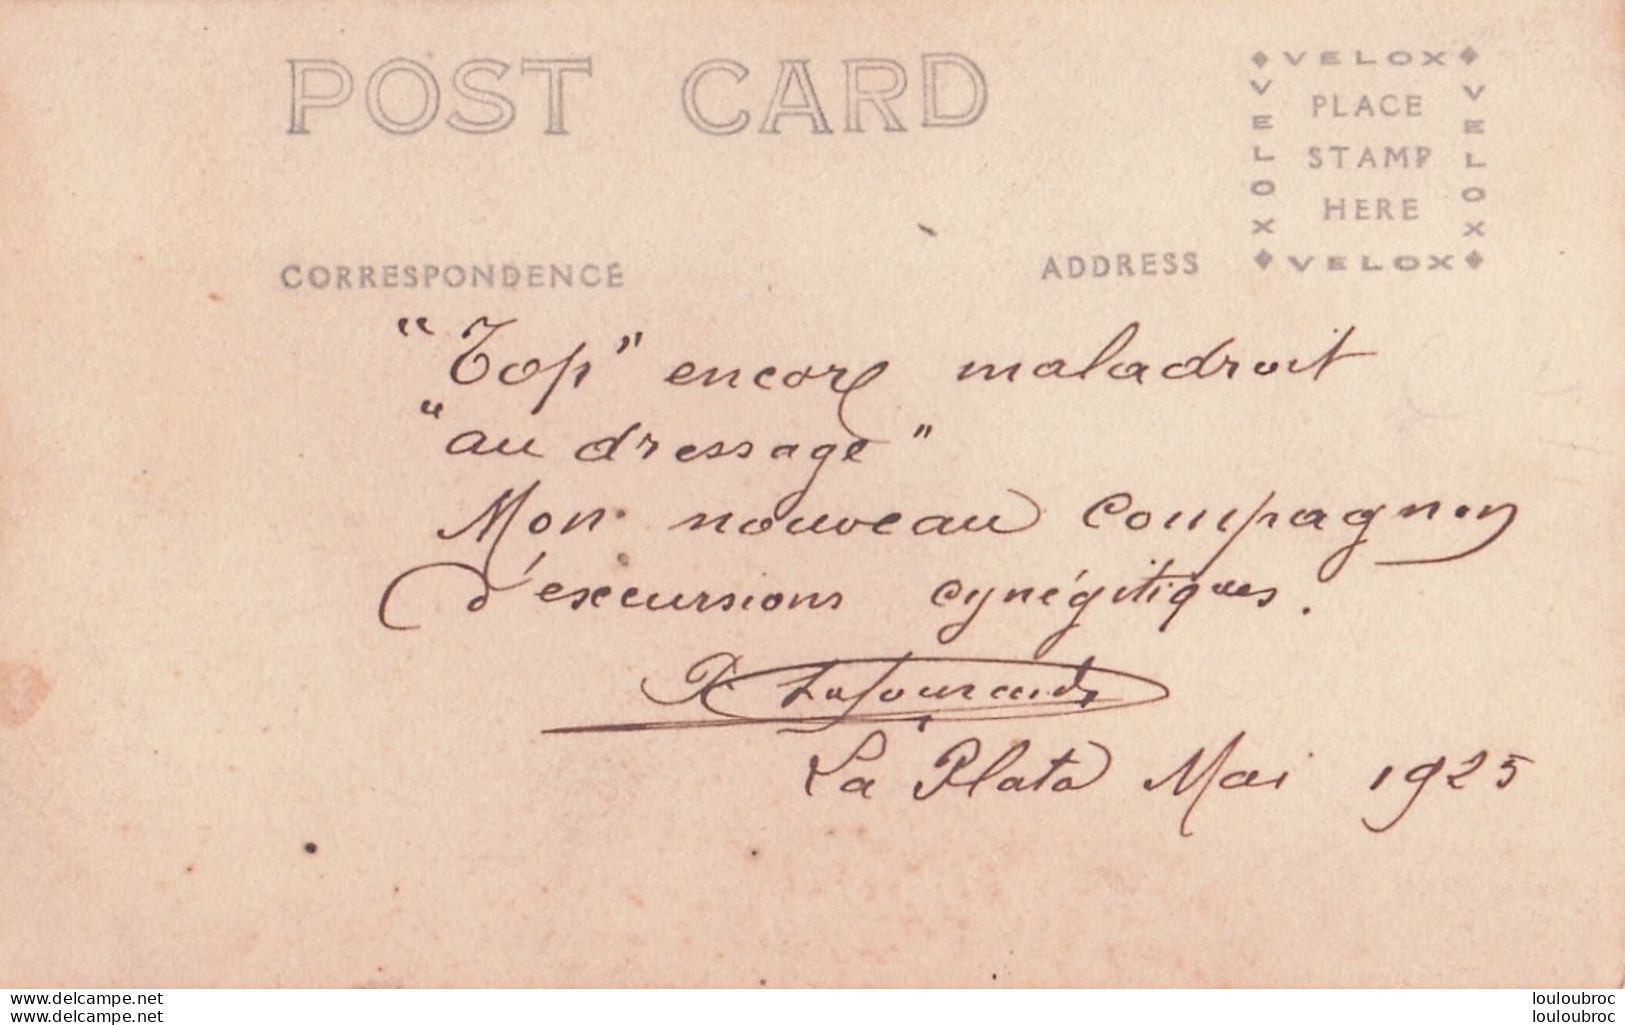 POST CARD
VELOX
VELOX
VELOX
PLACE
STAMP
HERE
CORRESPONDENCE
ADDRESS
VELOX
"Top" encore maladroit
"au dressage"
Mon nouveau compagnon
d'excursions cynégitiques.
La Plata Mai 1925
www.delcampe.net
www.delcampe.net
louloubroc
louloubroc